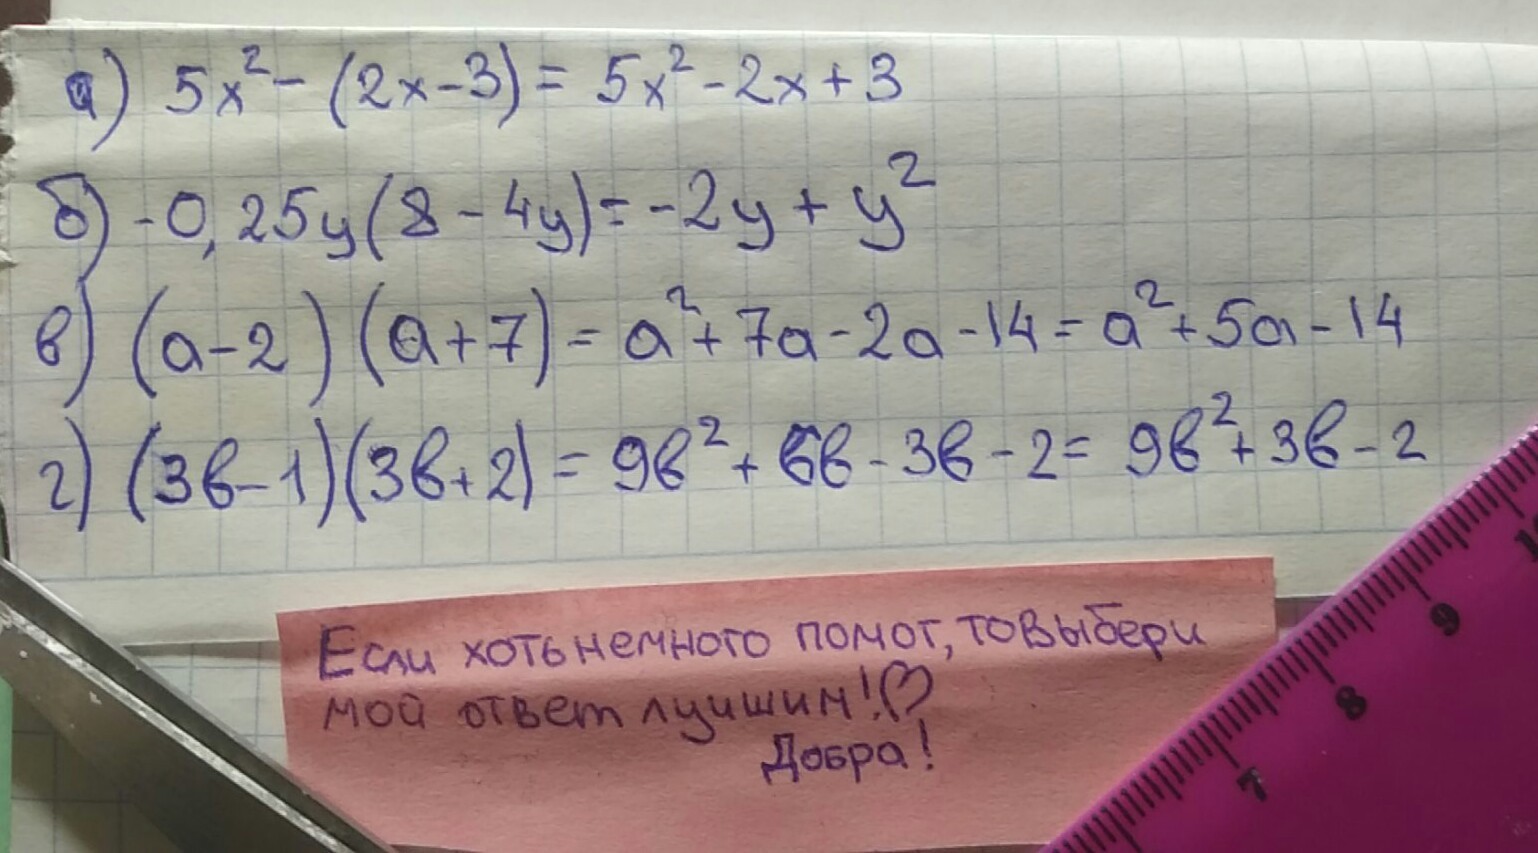 а) 5x² - (2x-3) = 5x² - 2x + 3
б) -0,25y(8 - 4y) = -2y + y²
в) (a-2) (a+7) = a² + 7a - 2a - 14 = a² + 5a - 14
г) (3в-1)(3в+2) = 9в² + 6в - 3в - 2 = 9в² + 3в - 2
Если хоть немного помог, то выбери
мой ответ лучшим! ♡
Добра!
10
9
8
7